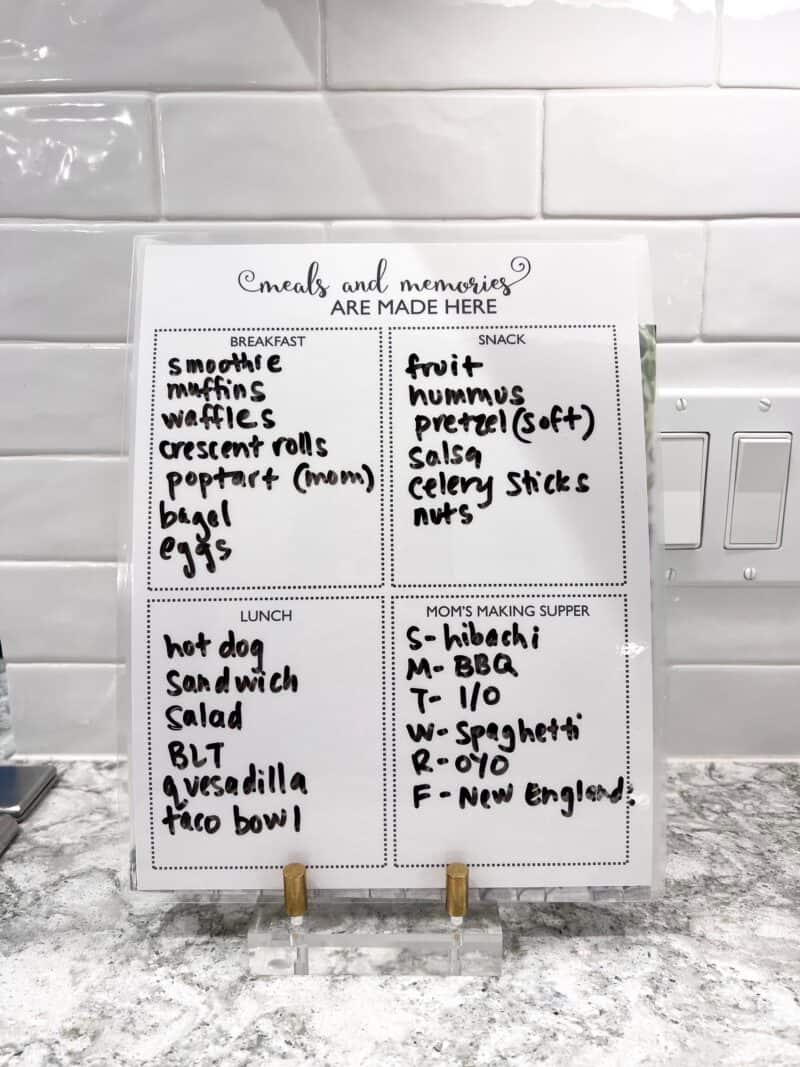 meals and memories
ARE MADE HERE
BREAKFAST
smoothie
muffins
waffles
crescent rolls
poptart (mom)
bagel
eggs
SNACK
fruit
hummus
pretzel (soft)
salsa
celery sticks
nuts
LUNCH
hot dog
sandwich
salad
BLT
quesadilla
taco bowl
MOM'S MAKING SUPPER
S- hibachi
M- BBQ
T- I/O
W- Spaghetti
R- OYO
F - New England!